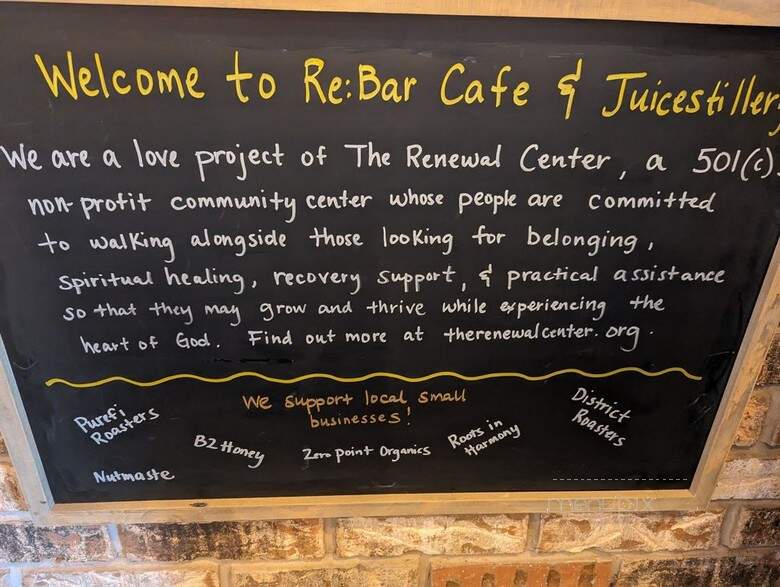 Welcome to Re:Bar Cafe & Juicestiller
We are a love project of The Renewal Center, a 501(c)
non-profit community center whose people are committed
to walking alongside those looking for belonging,
spiritual healing, recovery support, & practical assistance
so that they may grow and thrive while experiencing the
heart of God. Find out more at therenewalcenter.org.
We support local small
businesses!
Purefi
Roasters
B2 Honey
Zero Point Organics
Roots in
Harmony
District
Roasters
Nutmaste
menupix